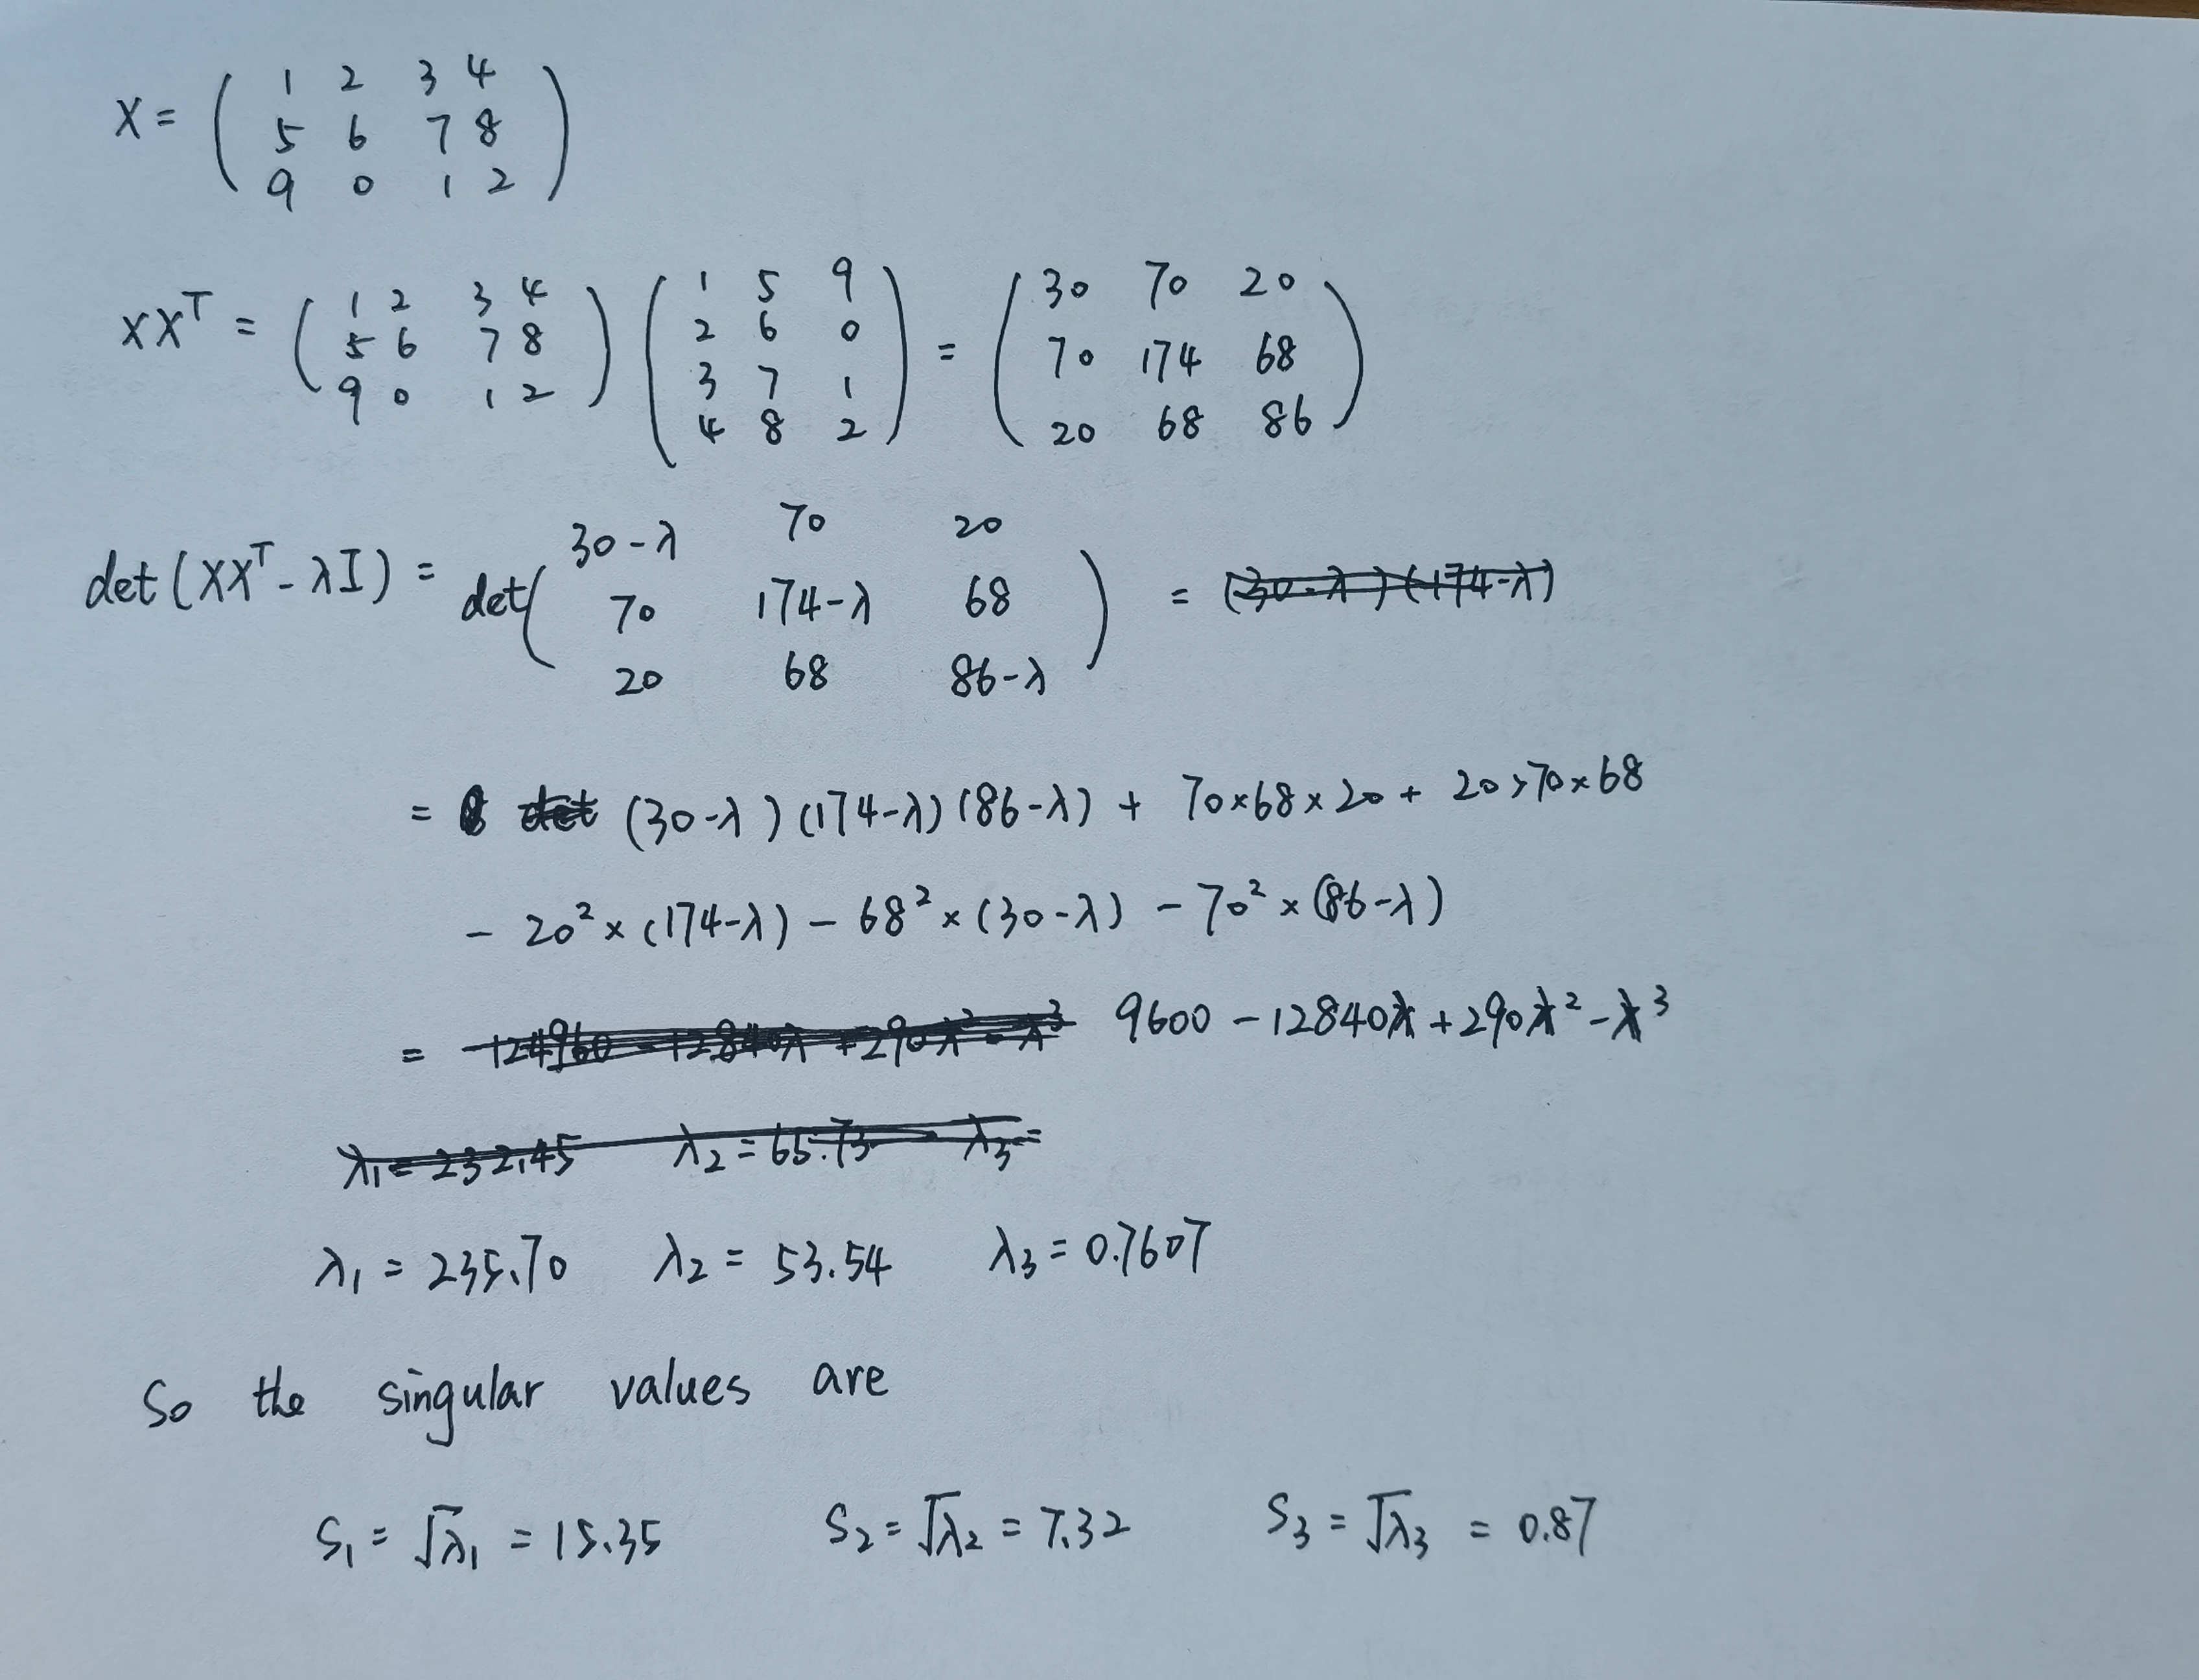 X = ( 1 2 3 4
5 6 7 8
9 0 1 2 )
XXᵀ = ( 1 2 3 4
5 6 7 8
9 0 1 2 ) ( 1 5 9
2 6 0
3 7 1
4 8 2 ) = ( 30 70 20
70 174 68
20 68 86 )
det(XXᵀ - λI) = det( 30-λ 70 20
70 174-λ 68
20 68 86-λ ) = (30-λ)(174-λ)
= det (30-λ)(174-λ)(86-λ) + 70×68×20 + 20×70×68
- 20² × (174-λ) - 68² × (30-λ) - 70² × (86-λ)
= -124960 - 12840λ + 290λ² - λ³ 9600 - 12840λ + 290λ² - λ³
λ₁ = 232.45 λ₂ = 65.73 λ₃ =
λ₁ = 235.70 λ₂ = 53.54 λ₃ = 0.7607
So the singular values are
S₁ = √λ₁ = 15.35 S₂ = √λ₂ = 7.32 S₃ = √λ₃ = 0.87